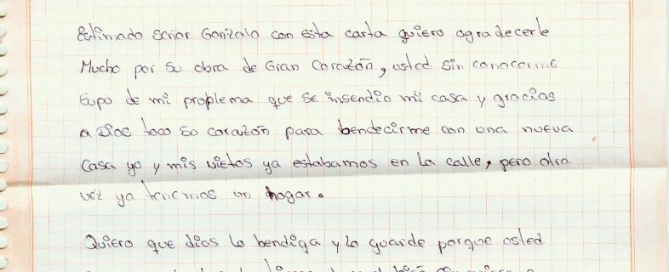 Estimado Señor Gonzalo con esta carta quiero agradecerle
Mucho por su obra de Gran Corazón, usted sin conocerme
supo de mi problema que se insendio mi casa y gracias
a Dios toco so corazón para bendecirme con una nueva
Casa yo y mis nietos ya estabamos en la calle, pero otra
vez ya tenemos un hogar.
Quiero que dios lo bendiga y lo guarde porque usted